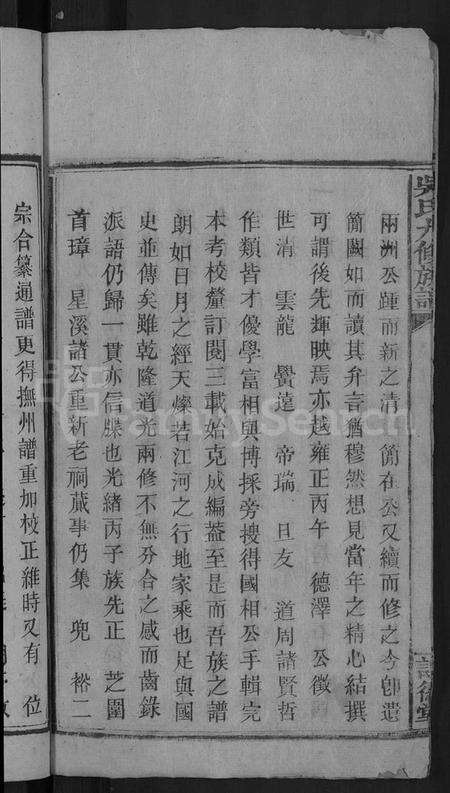 吳氏九修族譜
兩洲公踵而新之清 簡在公又續而修之今卽遺
簡闕如而讀其弁言猶穆然想見當年之精心結撰
可謂後先輝映焉亦越雍正丙午 德澤 公徵
世清 雲龍 霽遠 帝瑞 旦友 道周諸賢哲
作類皆才優學富相與博採旁搜得國相公手輯完
本考校釐訂閱三載始克成編蓋至是而吾族之譜
朗如日月之經天燦若江河之行地家乘也足與國
史並傳矣雖乾隆道光兩修不無分合之感而齒錄
派語仍歸一貫亦信牒也光緒丙子族先正 芝圃
首璋 星溪諸公重新老祠蕆事仍集 兜 裕二
宗合纂通譜更得撫州譜重加校正維時又有 位
FamilySearch